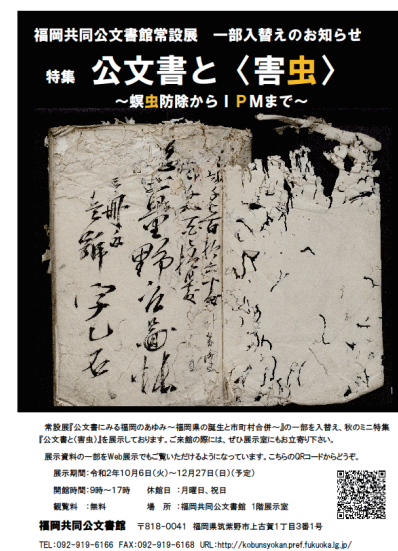 福岡共同公文書館常設展　一部入替えのお知らせ
特集　公文書と〈害虫〉
～螟虫防除からＩＰＭまで～
常設展『公文書にみる福岡のあゆみ～福岡県の誕生と市町村合併～』の一部を入替え、秋のミニ特集
『公文書と〈害虫〉』を展示しております。ご来館の際には、ぜひ展示室にもお立寄り下さい。
展示資料の一部をWeb展示でもご覧いただけるようになっています。こちらのQRコードからどうぞ。
展示期間：令和2年10月6日(火)～12月27日(日)(予定)
開館時間：9時～17時　休館日　：月曜日、祝日
観覧料　：無料　　場　所　：福岡共同公文書館　1階展示室
福岡共同公文書館　〒818-0041　福岡県筑紫野市上古賀1丁目3番1号
TEL:092-919-6166　FAX:092-919-6168　URL:http://kobunsyokan.pref.fukuoka.lg.jp/